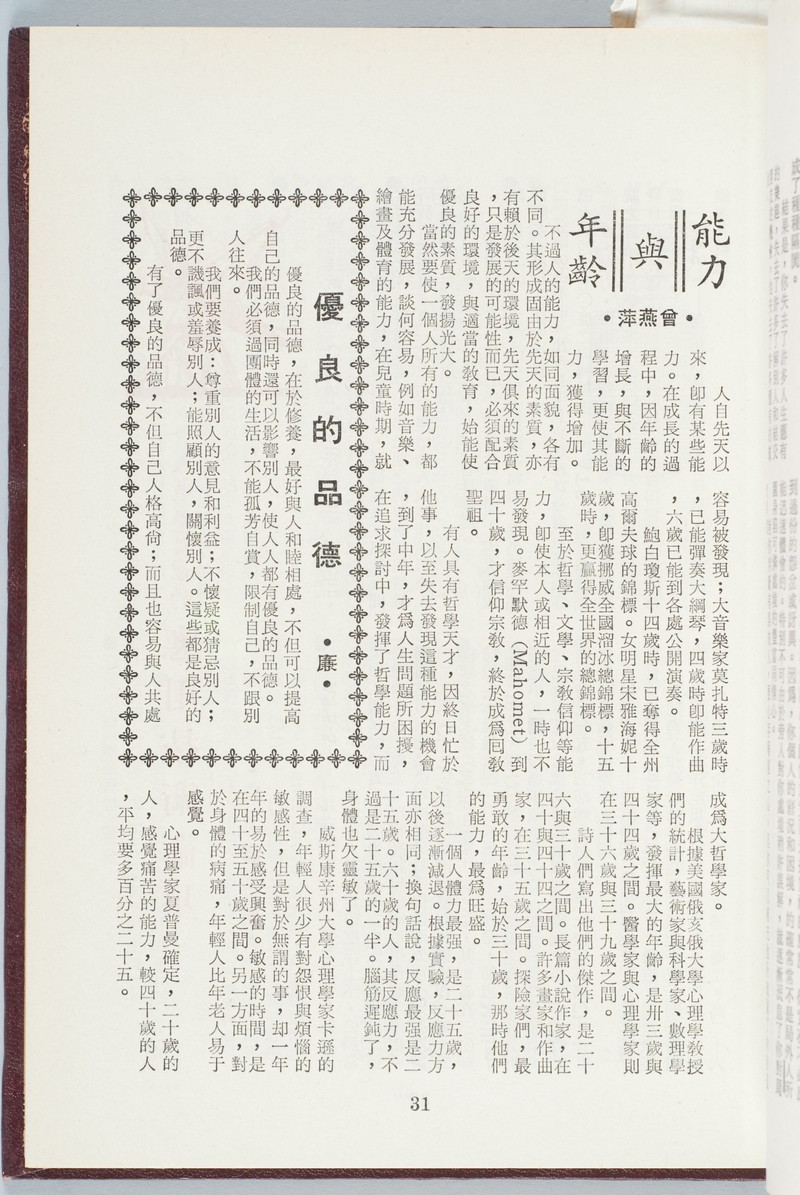 能力
與
年齡
•曾燕萍•
人自先天以
來，卽有某些能
力。在成長的過
程中，因年齡的
增長，與不斷的
學習，更使其能
力，獲得增加。
不過人的能力，如同面貌，各有
不同。其形成固由於先天的素質，亦
有賴於後天的環境，先天俱來的素質
，只是發展的可能性而已，必須配合
良好的環境，與適當的敎育，始能使
優良的素質，發揚光大。
當然要使一個人所有的能力，都
能充分發展，談何容易，例如音樂、
繪畫及體育的能力，在兒童時期，就
容易被發現；大音樂家莫扎特三歲時
，已能彈奏大綱琴，四歲時卽能作曲
，六歲已能到各處公開演奏。
鮑白瓊斯十四歲時，已奪得全州
高爾夫球的錦標。女明星宋雅海妮十
歲，卽獲挪威全國溜冰總錦標，十五
歲時，更贏得全世界的總錦標。
至於哲學、文學、宗敎信仰等能
力，卽使本人或相近的人，一時也不
易發現。麥罕默德（Mahomet）到
四十歲，才信仰宗敎，終於成爲回敎
聖祖。
有人具有哲學天才，因終日忙於
他事，以至失去發現這種能力的機會
，到了中年，才爲人生問題所困擾，
在追求探討中，發揮了哲學能力，而
成爲大哲學家。
根據美國俄亥俄大學心理學敎授
們的統計，藝術家與科學家、數理學
家等，發揮最大的年齡，是卅三歲與
四十四歲之間。醫學家與心理學家則
在三十六歲與三十九歲之間。
詩人們寫出他們的傑作，是二十
六與三十歲之間。長篇小說作家，在
四十與四十四之間。許多畫家和作曲
家，在三十五歲之間。探險家們，最
勇敢的年齡，始於三十歲，那時他們
的能力，最爲旺盛。
一個人體力最强，是二十五歲，
以後逐漸減退。根據實驗，反應力方
面亦相同；換句話說，反應最强是二
十五歲。六十歲的人，其反應力，不
過是二十五歲的一半。腦筋遲鈍了，
身體也欠靈敏了。
威斯康辛州大學心理學家卡遜的
調查，年輕人很少有對怨恨與煩惱的
敏感性，但是對於無謂的事，却一年
年的易於感受興奮。敏感的時間，是
在四十至五十歲之間。另一方面，對
於身體的病痛，年輕人比年老人易于
感覺。
心理學家夏普曼確定，二十歲的
人，感覺痛苦的能力，較四十歲的人
，平均要多百分之二十五。
優良的品德
•廉•
優良的品德，在於修養，最好與人和睦相處，不但可以提高
自己的品德，同時還可以影響別人，使人人都有優良的品德。
我們必須過團體的生活，不能孤芳自賞，限制自己，不跟別
人往來。
我們要養成：尊重別人的意見和利益；不懷疑或猜忌別人；
更不譏諷或羞辱別人；能照顧別人，關懷別人。這些都是良好的
品德。
有了優良的品德，不但自己人格高尙；而且也容易與人共處
31